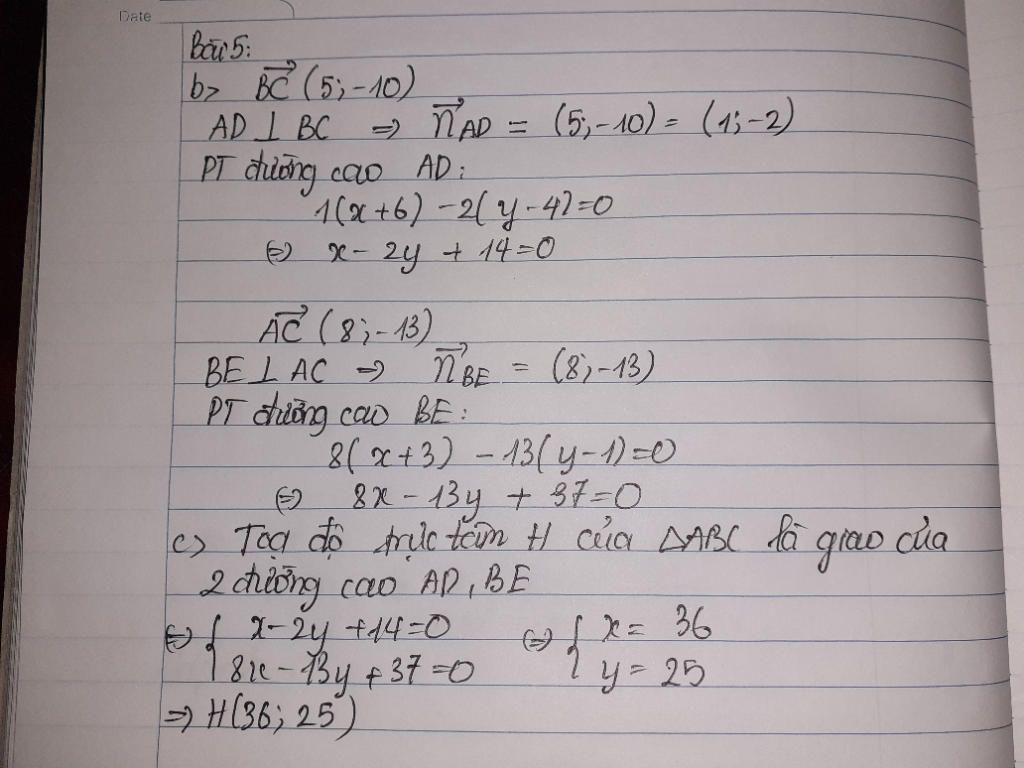 Date
Bài 5:
b> \overrightarrow{BC} (5; -10)
AD ⊥ BC ⇒ \overrightarrow{n}_{AD} = (5; -10) = (1; -2)
PT đường cao AD:
1(x+6) - 2(y-4)=0
⇔ x - 2y + 14=0
\overrightarrow{AC} (8; -13)
BE ⊥ AC ⇒ \overrightarrow{n}_{BE} = (8; -13)
PT đường cao BE:
8(x+3) - 13(y-1)=0
⇔ 8x - 13y + 37=0
c> Toạ độ trực tâm H của ΔABC là giao của
2 đường cao AD, BE
⇔ { x - 2y + 14=0 ⇔ { x = 36
8x - 13y + 37=0 y = 25
⇒ H(36; 25)